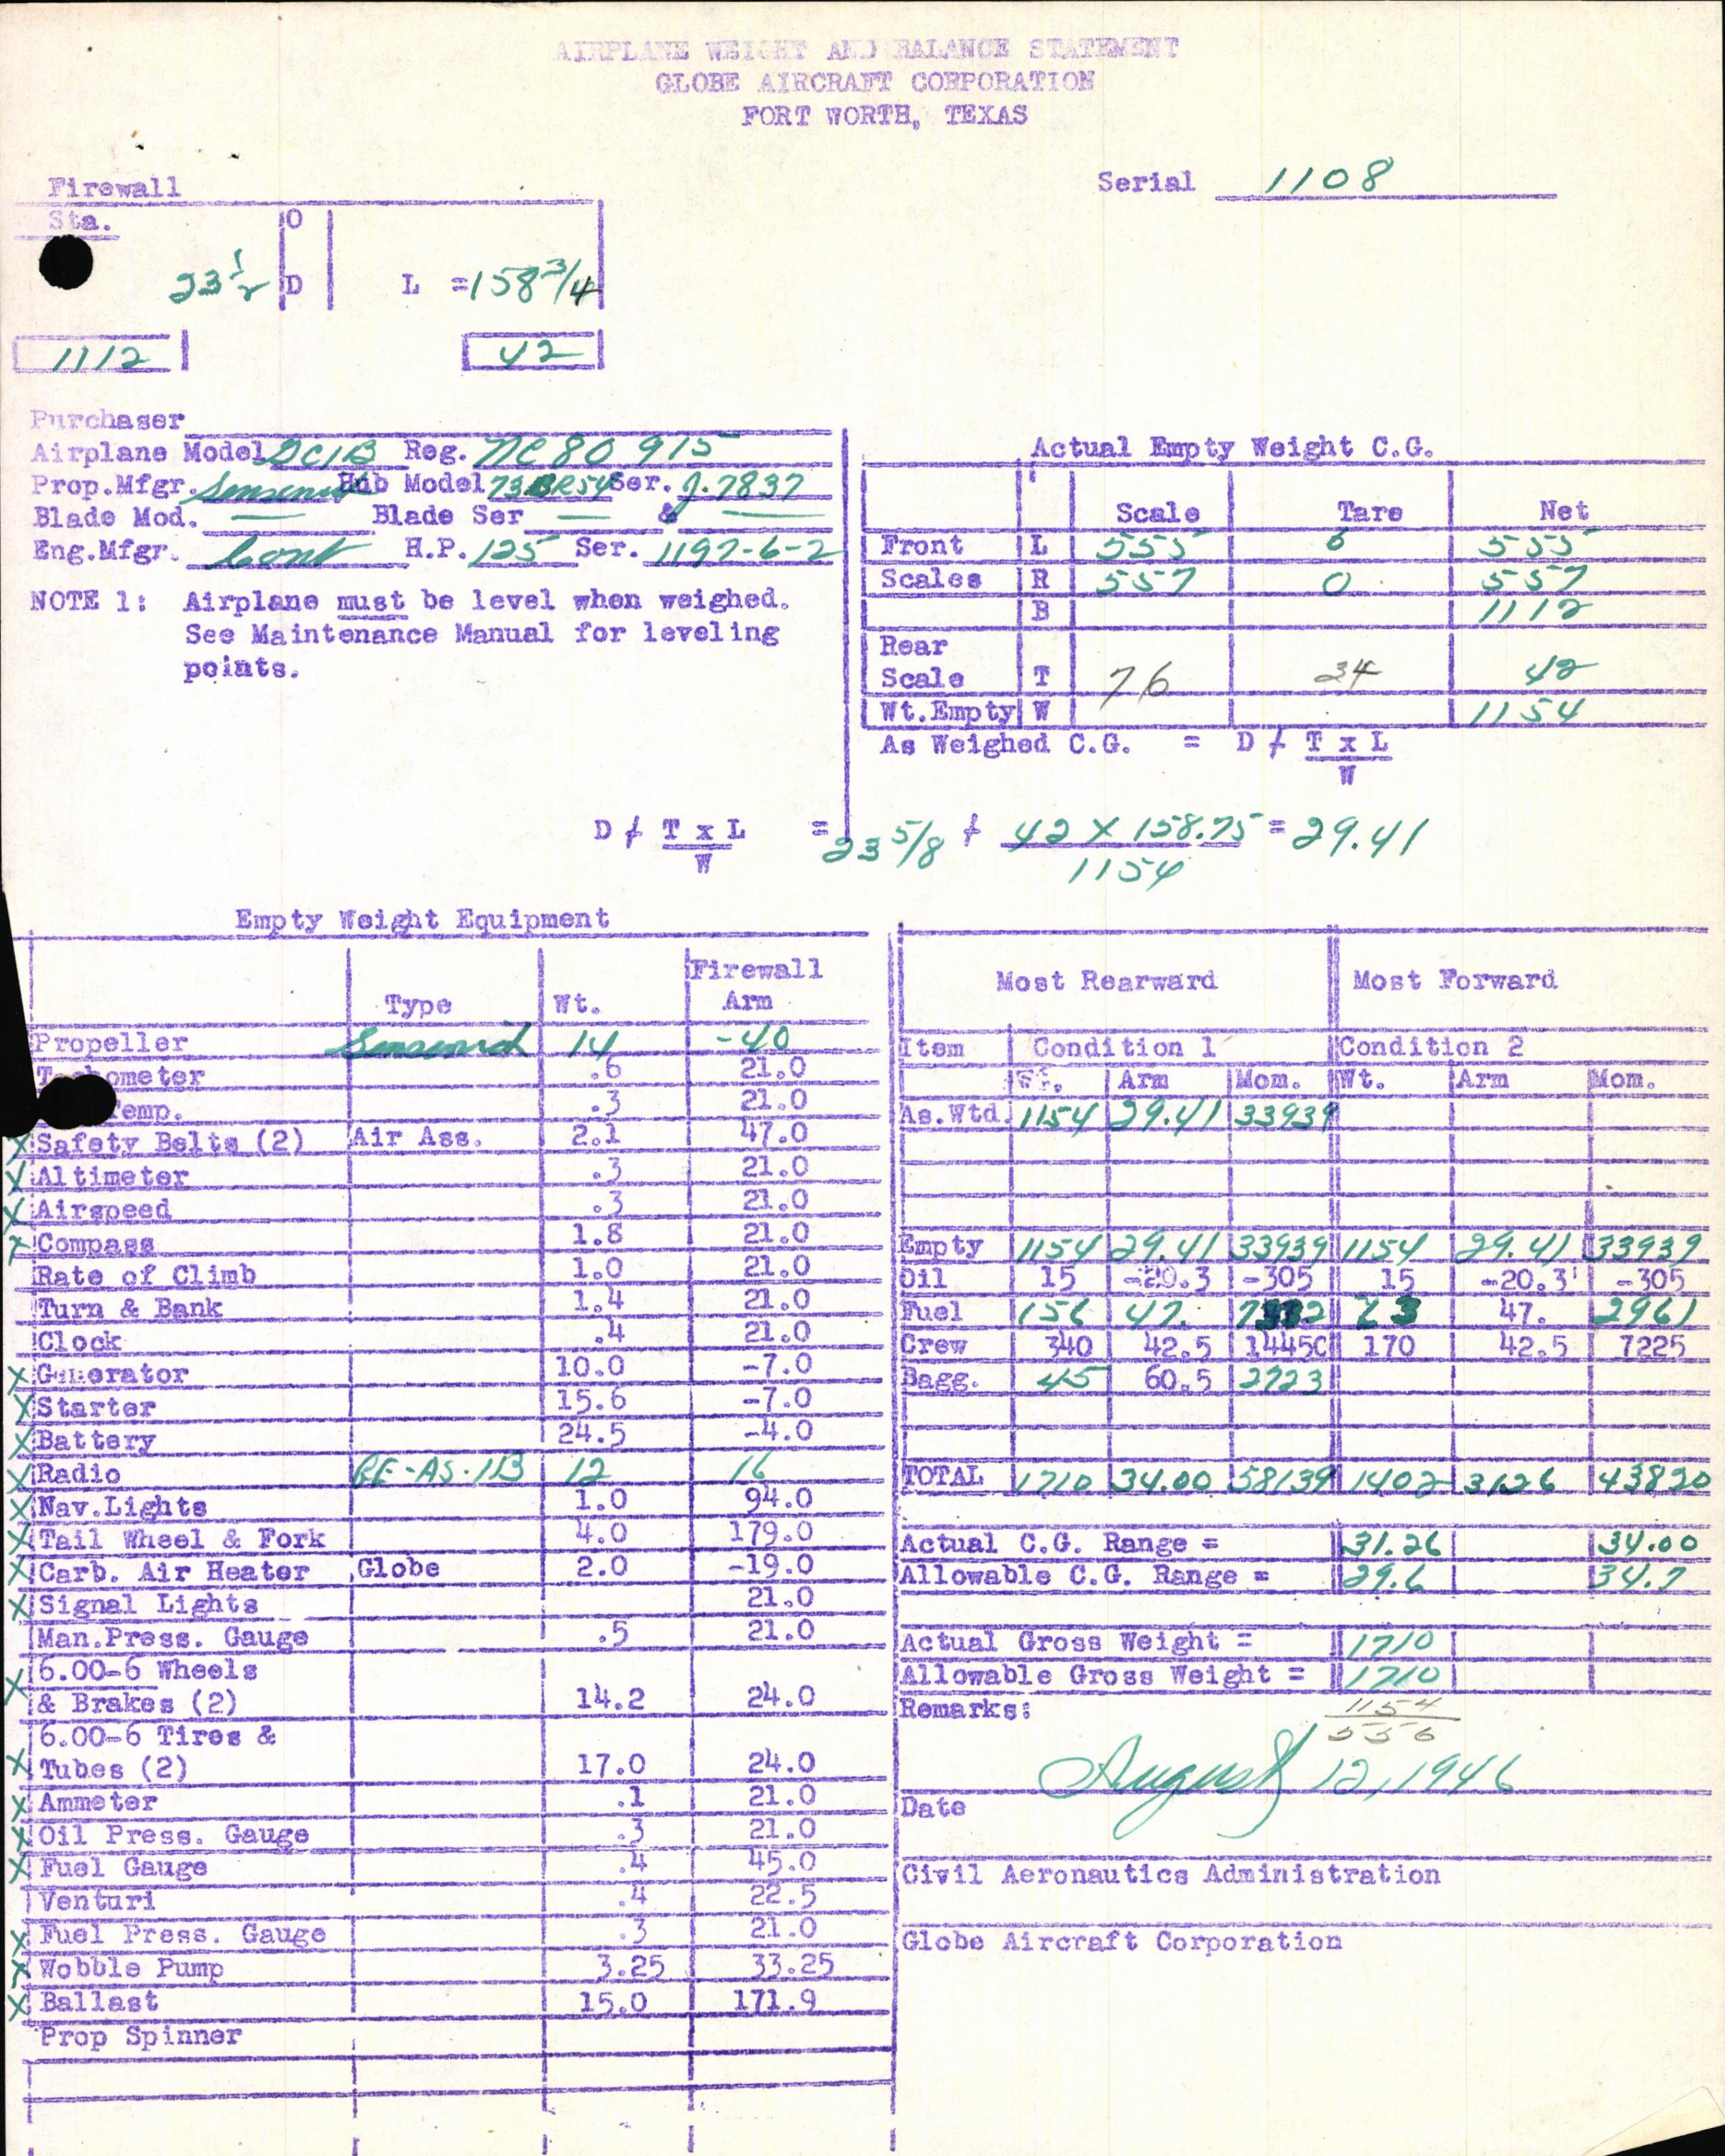 AIRPLANE WEIGHT AND BALANCE STATEMENT
GLOBE AIRCRAFT CORPORATION
FORT WORTH, TEXAS
Serial 1108
Firewall
Sta. O
23 1/2 D L =158 3/4
1112 42
Purchaser
Airplane Model GC1B Reg. NC80915
Prop.Mfgr. Sensenich Hub Model 73BR54 Ser. J.7837
Blade Mod. — Blade Ser — & —
Eng.Mfgr. Cont H.P. 125 Ser. 1197-6-2
NOTE 1: Airplane must be level when weighed.
See Maintenance Manual for leveling
points.
Actual Empty Weight C.G.
Scale Tare Net
Front L 555 0 555
Scales R 557 0 557
B 1112
Rear
Scale T 76 34 42
Wt.Empty W 1154
As Weighed C.G. = D + T x L
W
D + T x L = 23 5/8 + 42 X 158.75 = 29.41
W 1154
Empty Weight Equipment
Type Wt. Firewall Arm
Propeller Sensenich 14 -40
Tachometer .6 21.0
Temp. .3 21.0
X Safety Belts (2) Air Ass. 2.1 47.0
X Altimeter .3 21.0
X Airspeed .3 21.0
X Compass 1.8 21.0
Rate of Climb 1.0 21.0
Turn & Bank 1.4 21.0
Clock .4 21.0
X Generator 10.0 -7.0
X Starter 15.6 -7.0
X Battery 24.5 -4.0
X Radio RE-AS-1B 12 16
X Nav.Lights 1.0 94.0
X Tail Wheel & Fork 4.0 179.0
X Carb. Air Heater Globe 2.0 -19.0
X Signal Lights 21.0
Man.Press. Gauge .5 21.0
6.00-6 Wheels
X & Brakes (2) 14.2 24.0
6.00-6 Tires &
X Tubes (2) 17.0 24.0
X Ammeter .1 21.0
X Oil Press. Gauge .3 21.0
X Fuel Gauge .4 45.0
Venturi .4 22.5
X Fuel Press. Gauge .3 21.0
X Wobble Pump 3.25 33.25
X Ballast 15.0 171.9
Prop Spinner
Most Rearward Most Forward
Item Condition 1 Condition 2
Wt. Arm Mom. Wt. Arm Mom.
As.Wtd. 1154 29.41 33939
Empty 1154 29.41 33939 1154 29.41 33939
Oil 15 -20.3 -305 15 -20.3 -305
Fuel 156 47. 7332 63 47. 2961
Crew 340 42.5 14450 170 42.5 7225
Bagg. 45 60.5 2723
TOTAL 1710 34.00 58139 1402 31.26 43820
Actual C.G. Range = 31.26 34.00
Allowable C.G. Range = 29.6 34.7
Actual Gross Weight = 1710
Allowable Gross Weight = 1710
Remarks: 1154
556
August 12, 1946
Date
Civil Aeronautics Administration
Globe Aircraft Corporation